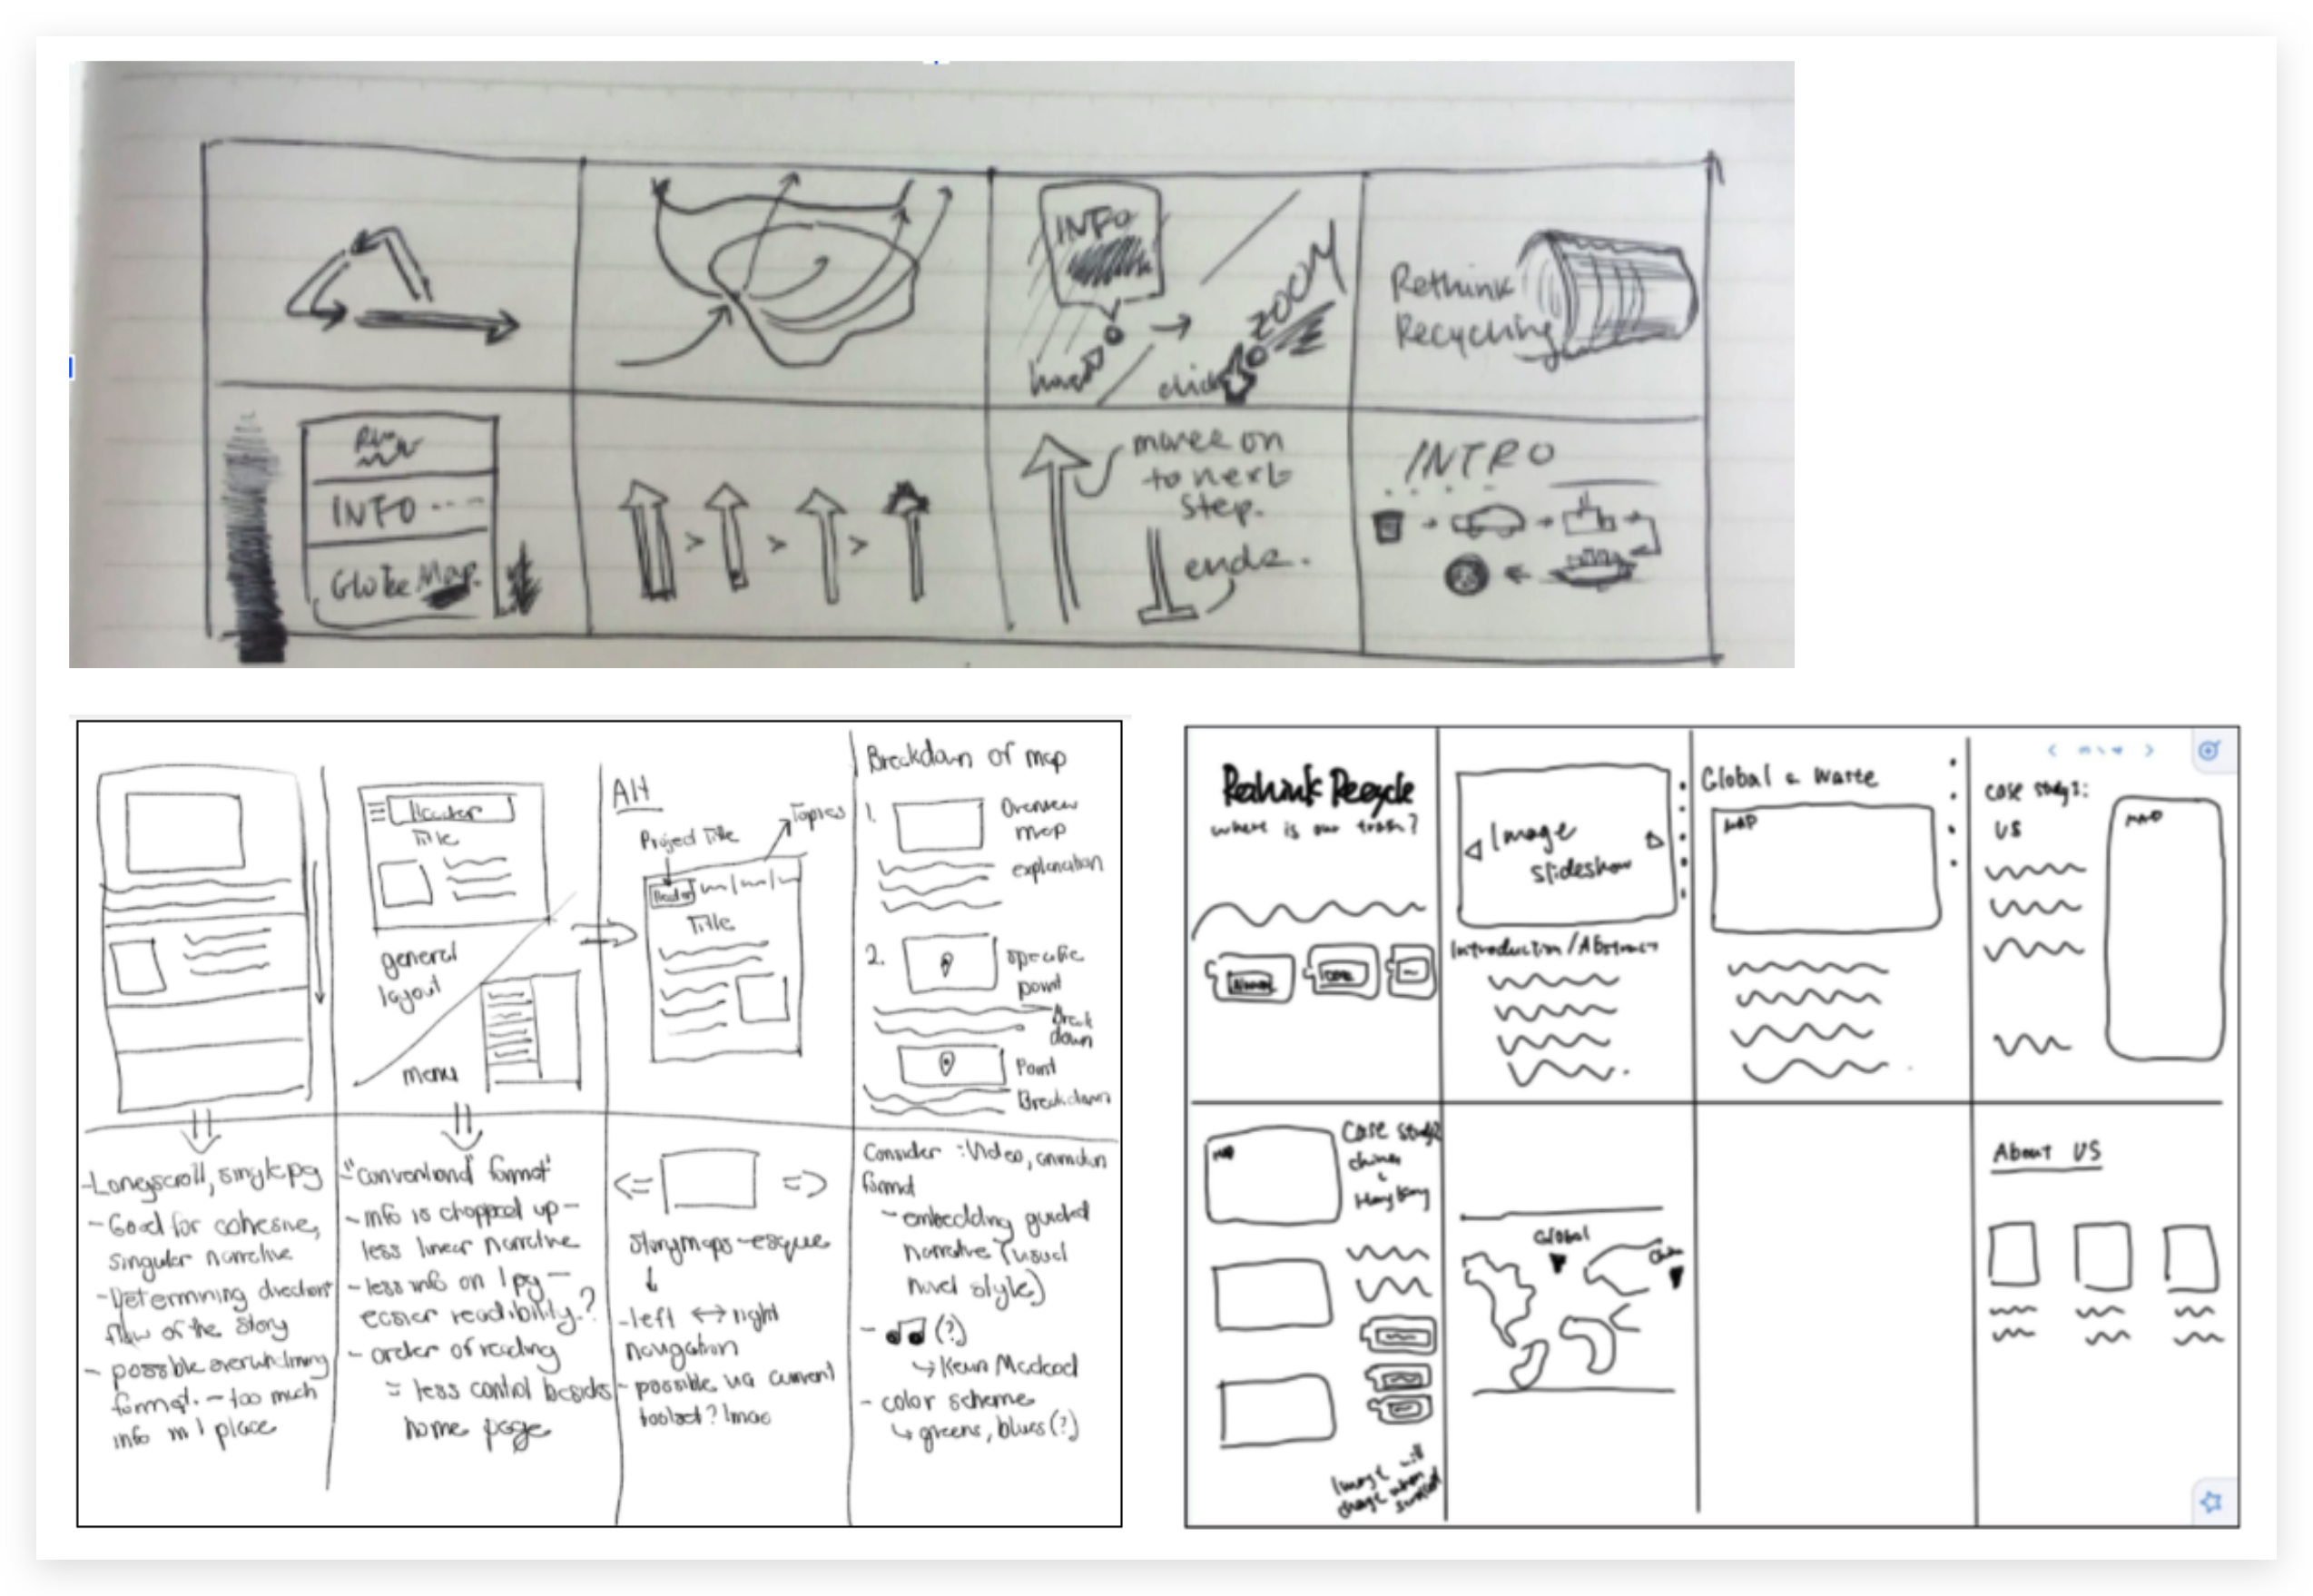 INFO
hover
click
ZOOM
Rethink
Recycling
INFO ----
Globe Map.
> > >
move on
to next
step.
ends.
INTRO
Header
Title
general
layout
menu
Alt
Project Title
Topics
Header
Title
Breakdown of map
1.
Overview
map
explanation
2.
specific
point
Break
down
Point
Breakdown
- Longscroll, single pg
- Good for cohesive,
singular narrative
- Determining direction
flow of the story
- possible overwhelming
format. - too much
info in 1 place
- "conventional" format
- info is chopped up -
less linear narrative
- less info on 1 pg -
easier readibility?
- order of reading
= less control besides
home page
storymaps-esque
- left ↔ right
navigation
- possible via current
toolset? lmao
Consider : Video, animation
format
- embedding guided
narrative (visual
novel style)
- ♫ (?)
↳ Kevin Mcleod
- color scheme
↳ greens, blues (?)
Rethink Recycle
where is our trash?
Image
slideshow
Introduction/Abstract
Global e waste
MAP
case study 1:
US
MAP
case study 2
china
&
Hong Kong
Image will
change when
Global
China
About US